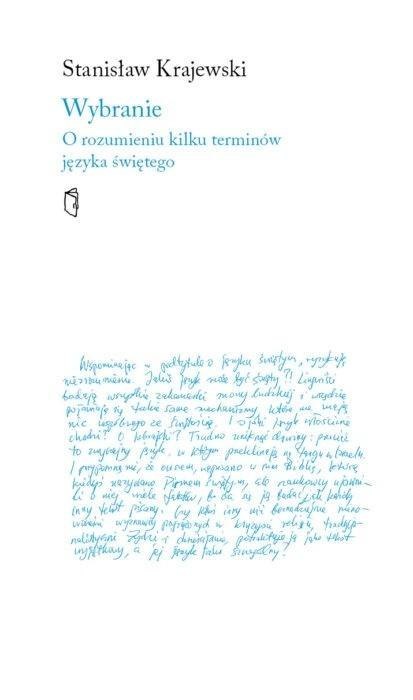 Stanisław Krajewski
Wybranie
O rozumieniu kilku terminów
języka świętego
Wspominając w podtytule o języku świętym, ryzykuję
niezrozumienie. Jakiś język może być święty?! Lingwiści
badają wszystkie zakamarki mowy ludzkiej i wszędzie
pojawiają się takie same mechanizmy, które nie mają
nic wspólnego ze świętością. I o jaki język właściwie
chodzi? O hebrajski? Trudno uniknąć drwiny: przecież
to zwyczajny język, w którym przeklinają na targu w Izraelu.
I przypomną mi, że owszem, napisano w nim Biblię, którą
kiedyś nazywano Pismem świętym, ale naukowcy ujawnili
o niej wiele faktów, bo da się ją badać jak każdy
inny tekst pisany. Czy ktoś inny niż beznadziejnie
wyznawcy pogrążonych w kryzysie religii,
Żydzi i chrześcijanie, potraktuje ją jako tekst
wyjątkowy, a jej język jako szczególny?